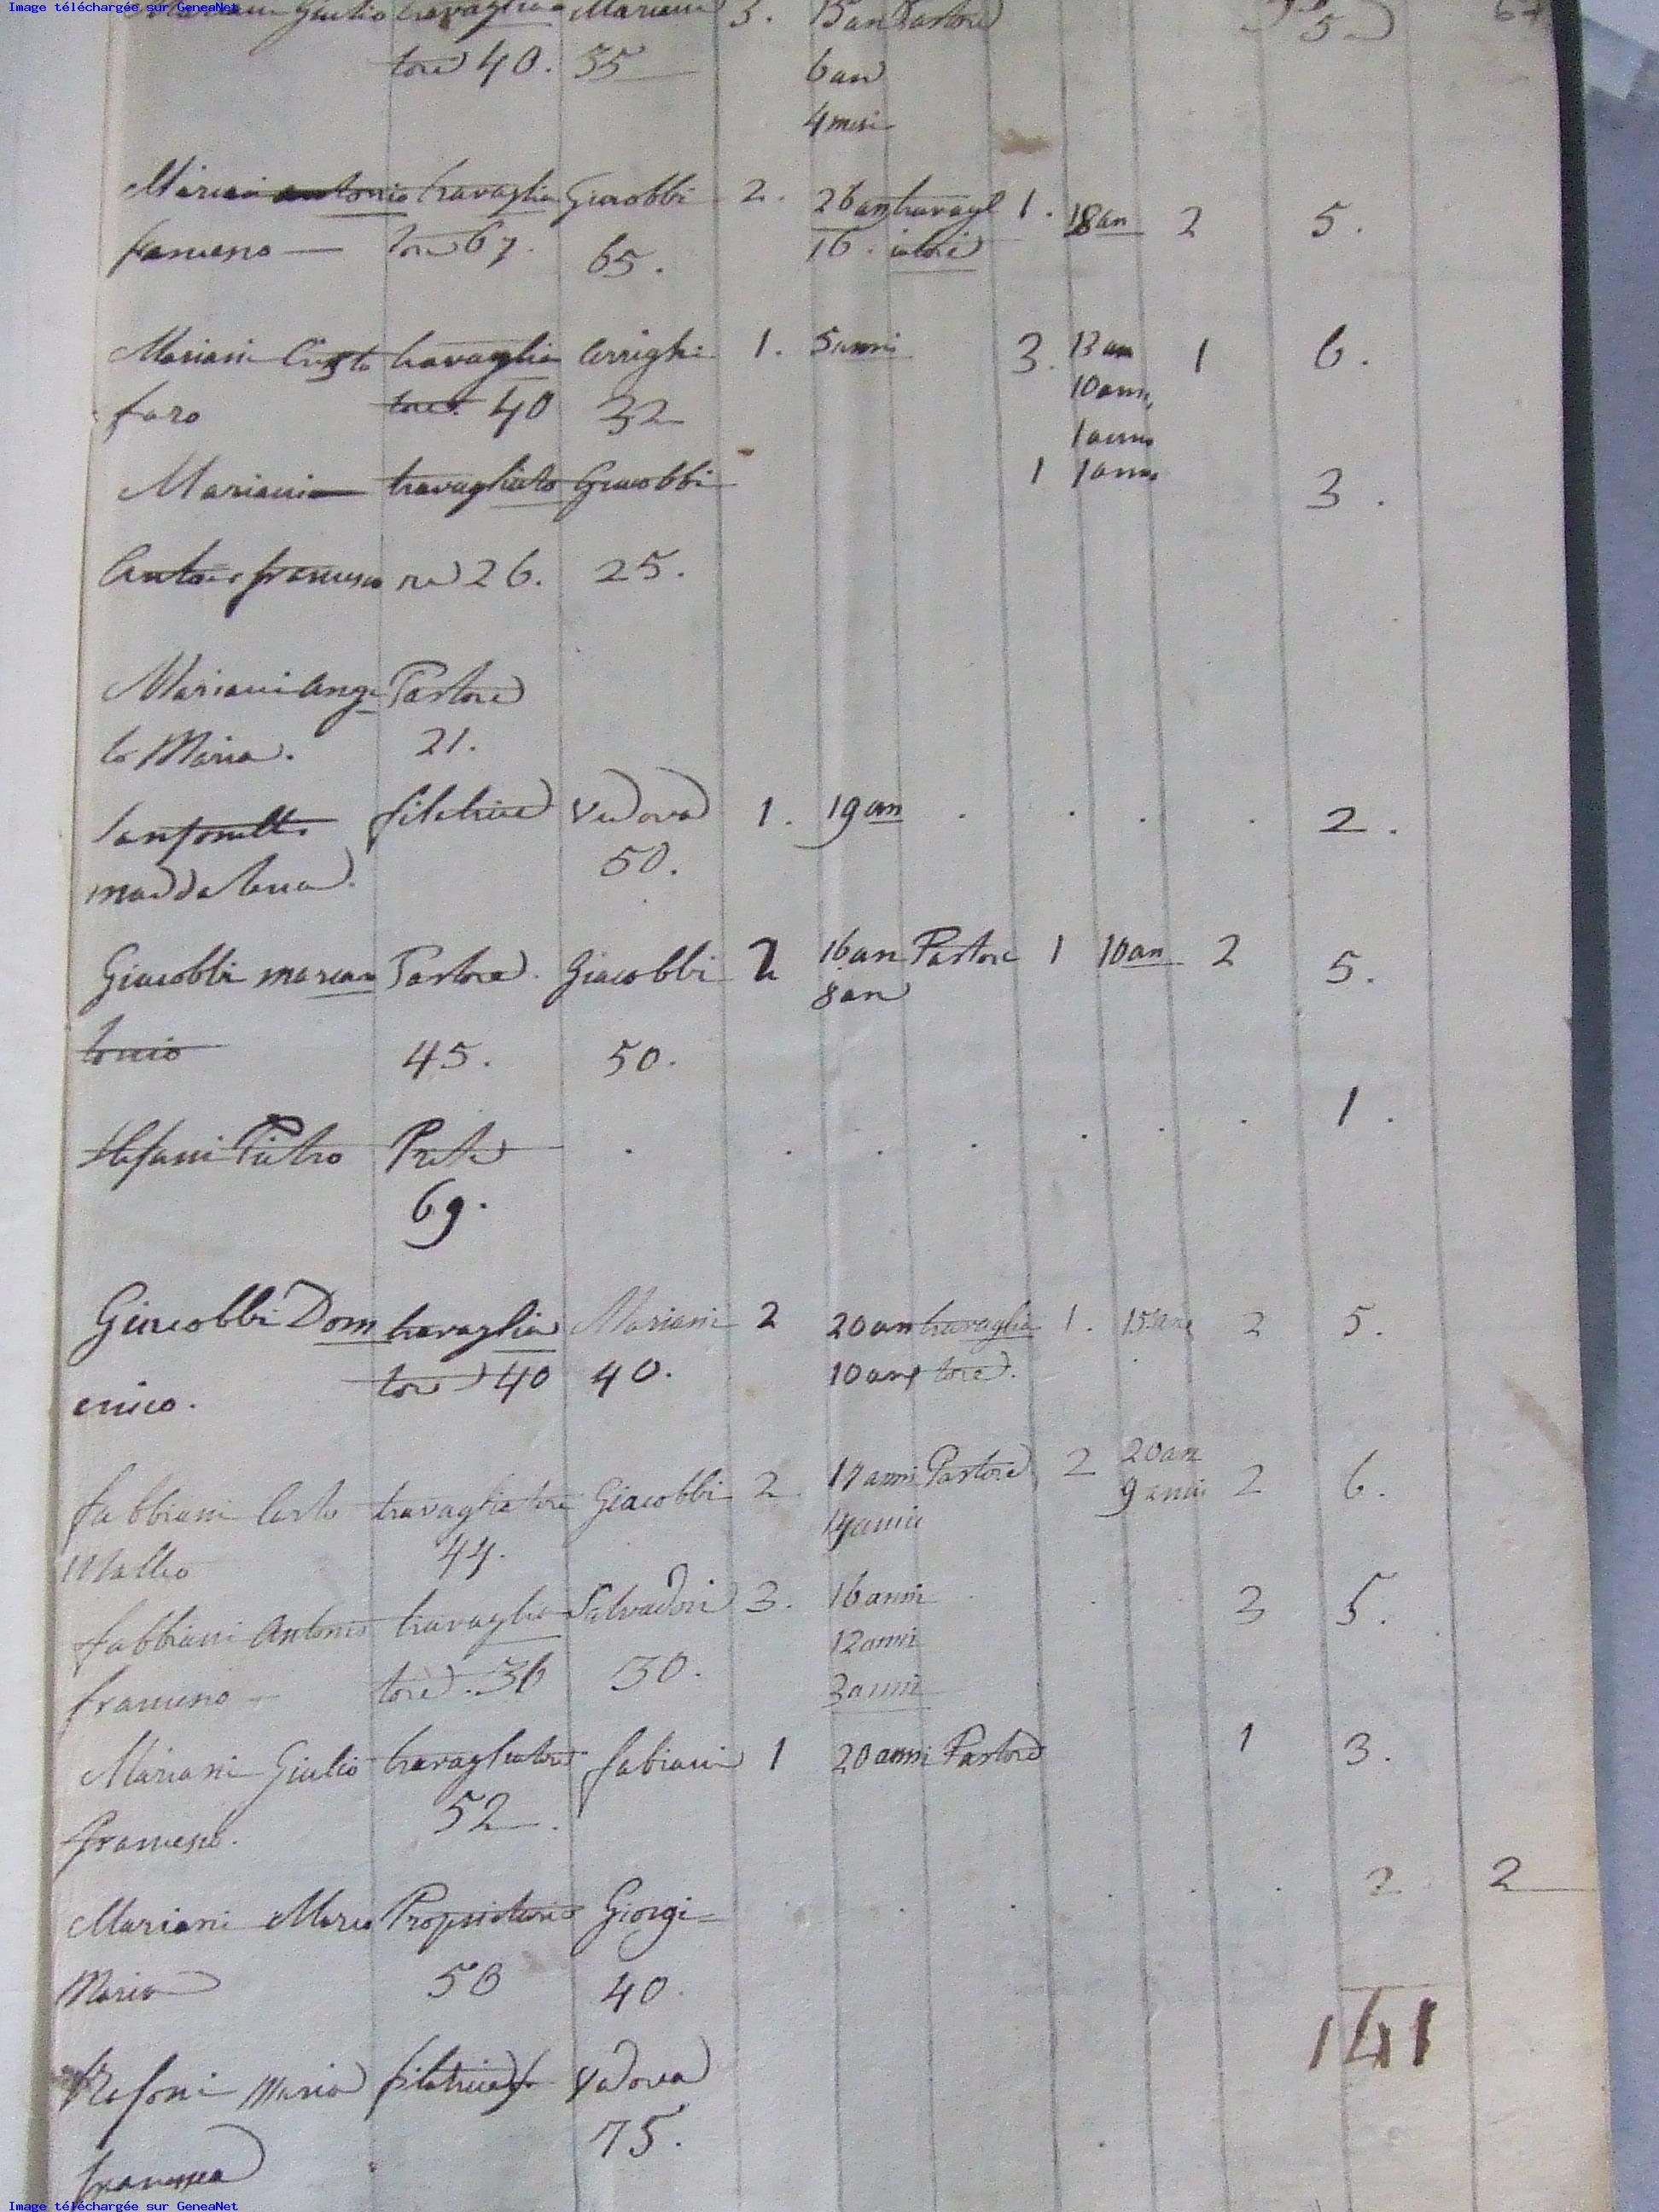 Image téléchargée sur GeneaNet
Mariani Giulio travaglia Mariani 3. 15 an Pastore 5 67
tore 40. 35 6 an
4 mesi
Mariani antonio travaglia Giacobbi 2. 26 an travagl 1. 18 an 2 5.
francesco tore 67. 65. 16. iatore
Mariani Cristo travaglia Arrighi 1. 5 anni 3. 13 an 1 6.
faro tore 40 32 10 anni
1 anno
Mariani travagliato Giacobbi 1 1 anno 3.
Anto francesco re 26. 25.
Mariani Ange Pastore
lo Maria. 21.
Sanfonetti filatrice Vedova 1. 19 an . . . . 2.
maddalena. 50.
Giacobbi marcan Pastore. Giacobbi 2 16 an Pastore 1 10 an 2 5.
8 an
tonio 45. 50.
Stefani Pietro Prete . . . . . . 1.
69.
Giacobbi Dom travaglia Mariani 2 20 an travaglia 1. 15 an 2 5.
enico. tore 40 40. 10 an tore.
fabbiani Carlo travagliatore Giacobbi 2 17 anni Pastore 2 20 an 2 6.
9 anni
Matteo 44. 14 anni
fabbiani Antonio travaglia Salvadori 3. 16 anni . . . 3 5.
12 anni
francesco tore. 36 30. 3 anni
Mariani Giulio travagliatore fabiani 1 20 anni Pastore 1 3.
francesco. 52.
Mariani Marco Proprietario Giorgi . . . . . . 2 2
Maria 50 40.
141
Stefani Maria filatrice Vedova
francesca 75.
Image téléchargée sur GeneaNet